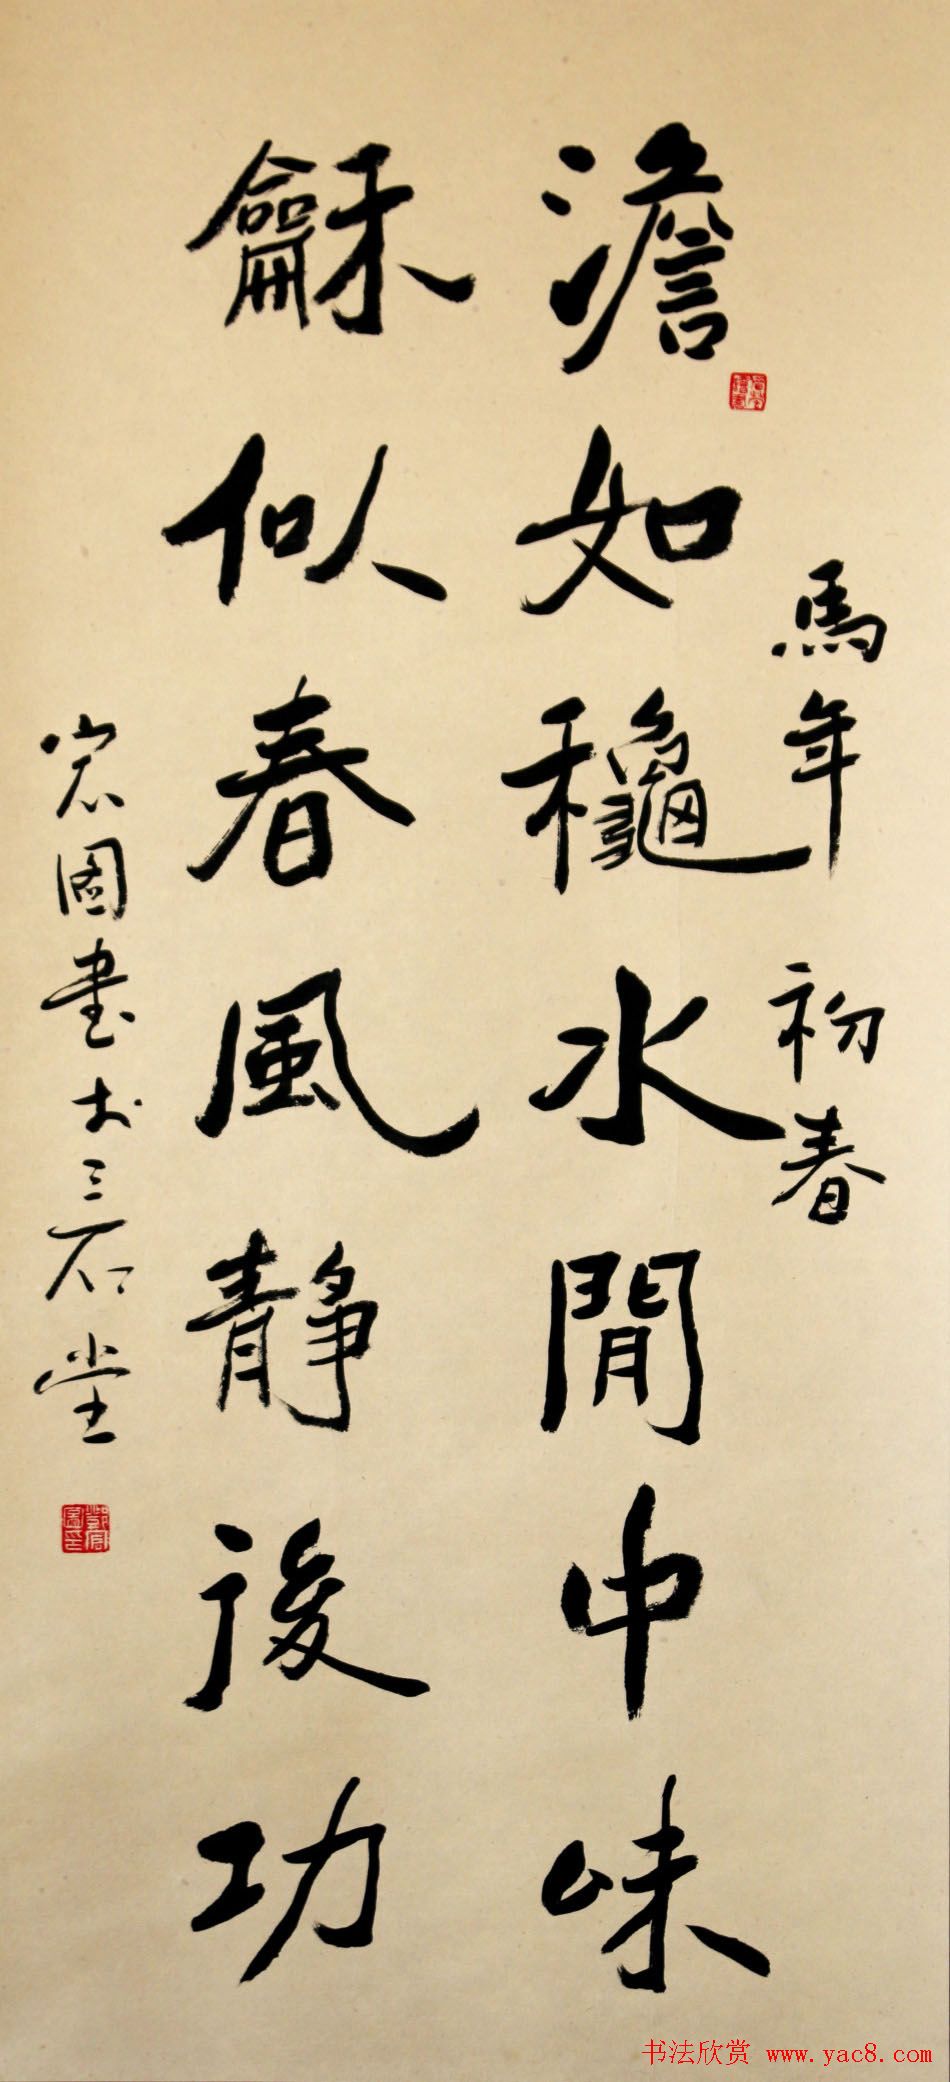 馬年初春
澹如龝水閒中味
龢似春風靜後功
宏圖書於三石堂
书法欣赏 www.yac8.com